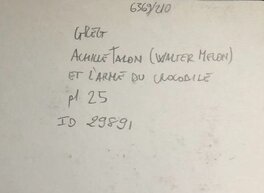 6369/210
GREG
ACHILLE TALON (WALTER MELON)
ET L'ARME DU CROCODILE
pl 25
ID 29891